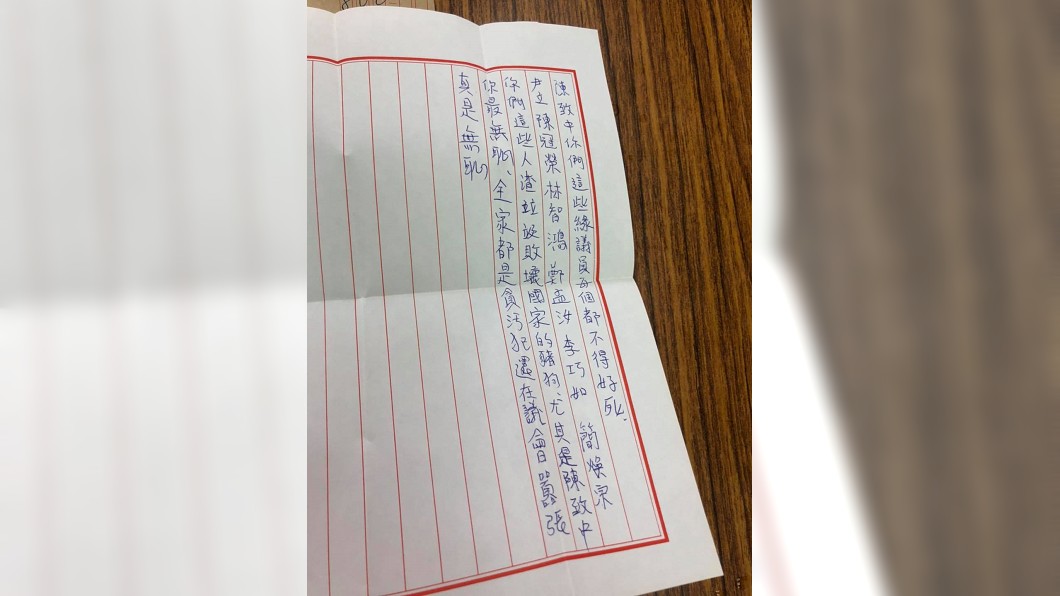 陳致中你們這些綠議員每個都不得好死.
尹立 陳冠榮 林智鴻 鄭孟洳 李巧如 簡煥宗
你們這些人渣並敗壞國家的豬狗尤其是陳致中
你最無恥、全家都是貪污犯還在議會囂張
真是無恥